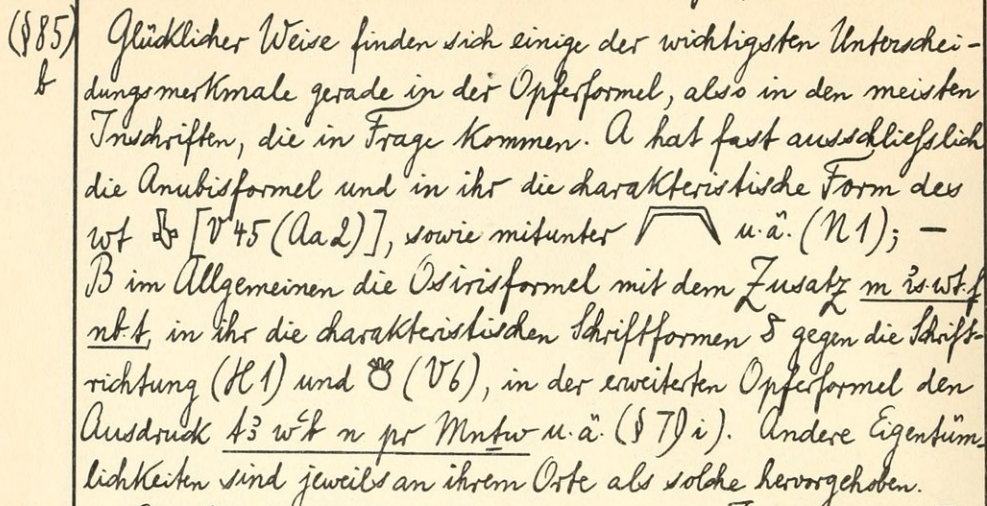 (§85) Glücklicher Weise finden sich einige der wichtigsten Unterschei-
b dungsmerkmale gerade in der Opferformel, also in den meisten
Inschriften, die in Frage kommen. A hat fast ausschließlich
die Anubisformel und in ihr die charakteristische Form des
wt [V 45 (Aa2)], sowie mitunter u.ä. (N1); —
B im Allgemeinen die Osirisformel mit dem Zusatz m ꜣs.wt.f
nb.t, in ihr die charakteristischen Schriftformen gegen die Schrift-
richtung (H1) und (V6), in der erweiterten Opferformel den
Ausdruck tꜣ wꜥb n pr Mnṯw u.ä. (§ 7) i). Andere Eigentüm-
lichkeiten sind jeweils an ihrem Orte als solche hervorgehoben.